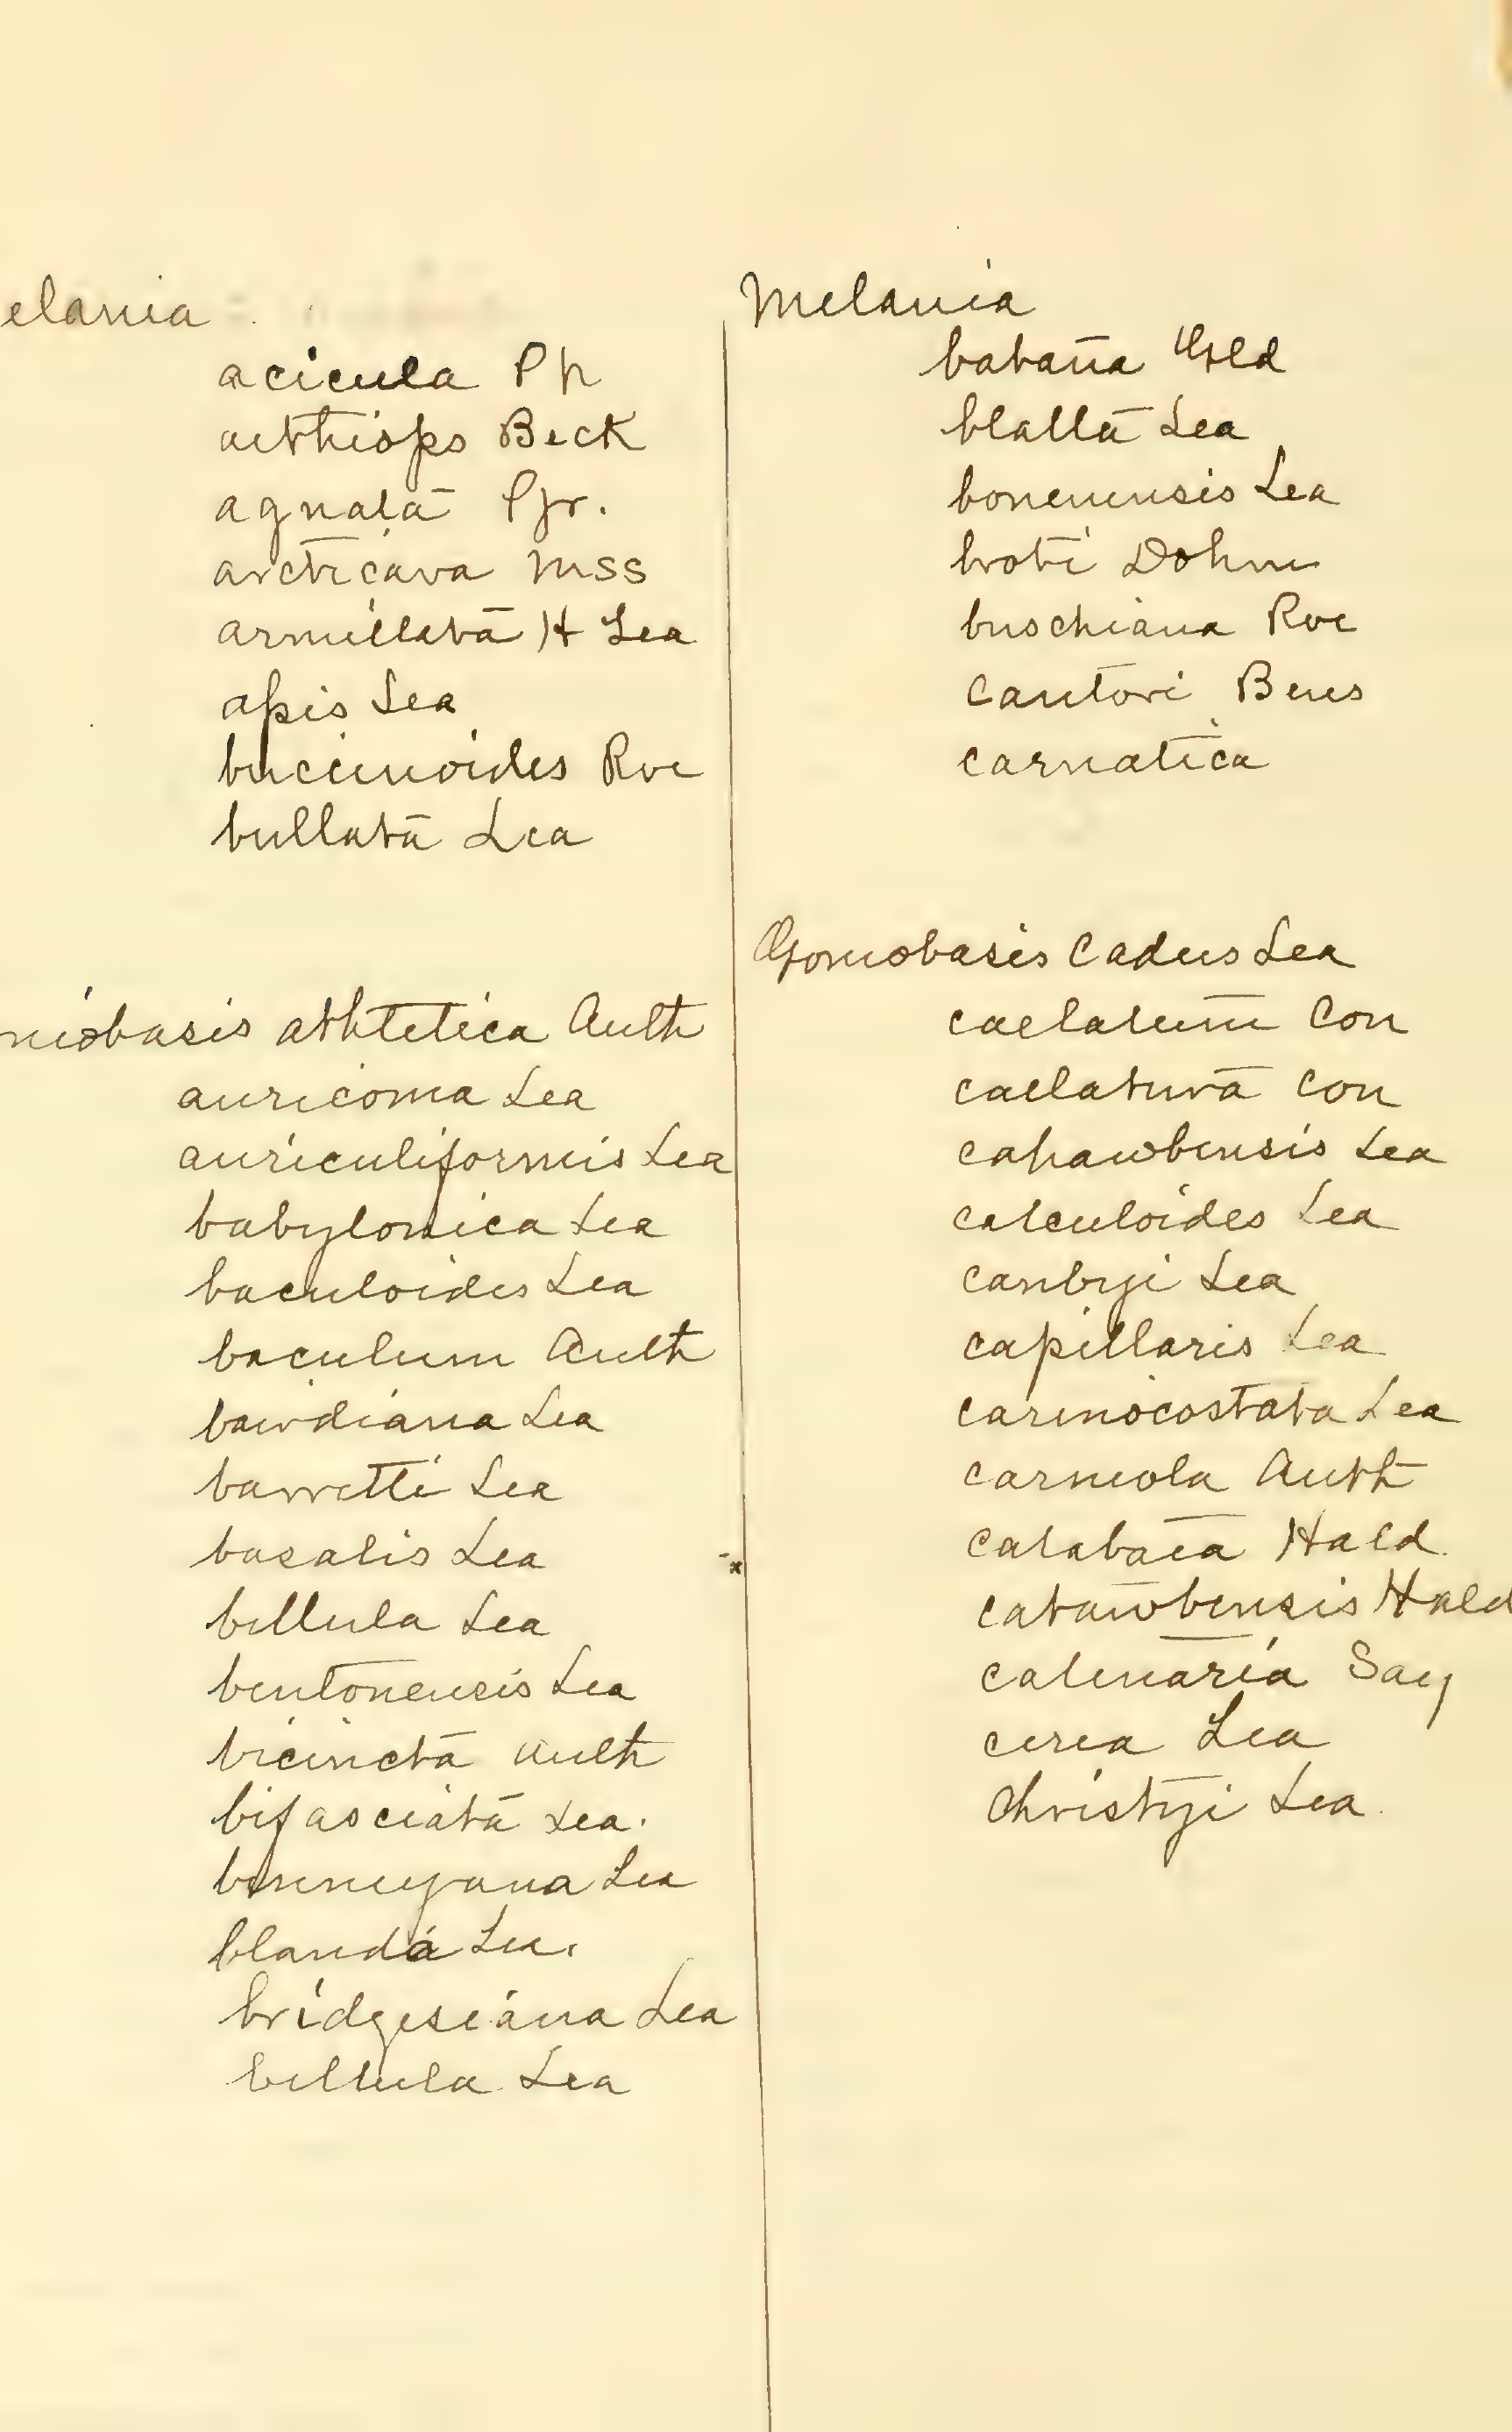 elania
acicula Ph
aethiops Beck
agnata Pfr.
arcticava Mss
armillata H Lea
apis Lea
buccinoides Rve
bullata Lea
niobasis athletica Anth
auricoma Lea
auriculiformis Lea
babylonica Lea
baculoides Lea
baculum Anth
bairdiana Lea
barretti Lea
basalis Lea
bellula Lea
bentonensis Lea
bicincta Anth
bifasciata Lea.
binneyana Lea
blanda Lea.
bridgesiana Lea
bellula Lea
Melania
batana Gld
blatta Lea
bonenensis Lea
broti Dohrn
buschiana Rve
cantori Bens
carnatica
Goniobasis Cadus Lea
caelatum Con
caelatura Con
cahawbensis Lea
calculoides Lea
canbyi Lea
capillaris Lea
carinocostata Lea
carneola Anth
catabaea Hald.
catawbensis Hald
catenaria Say
cerea Lea
Christyi Lea.